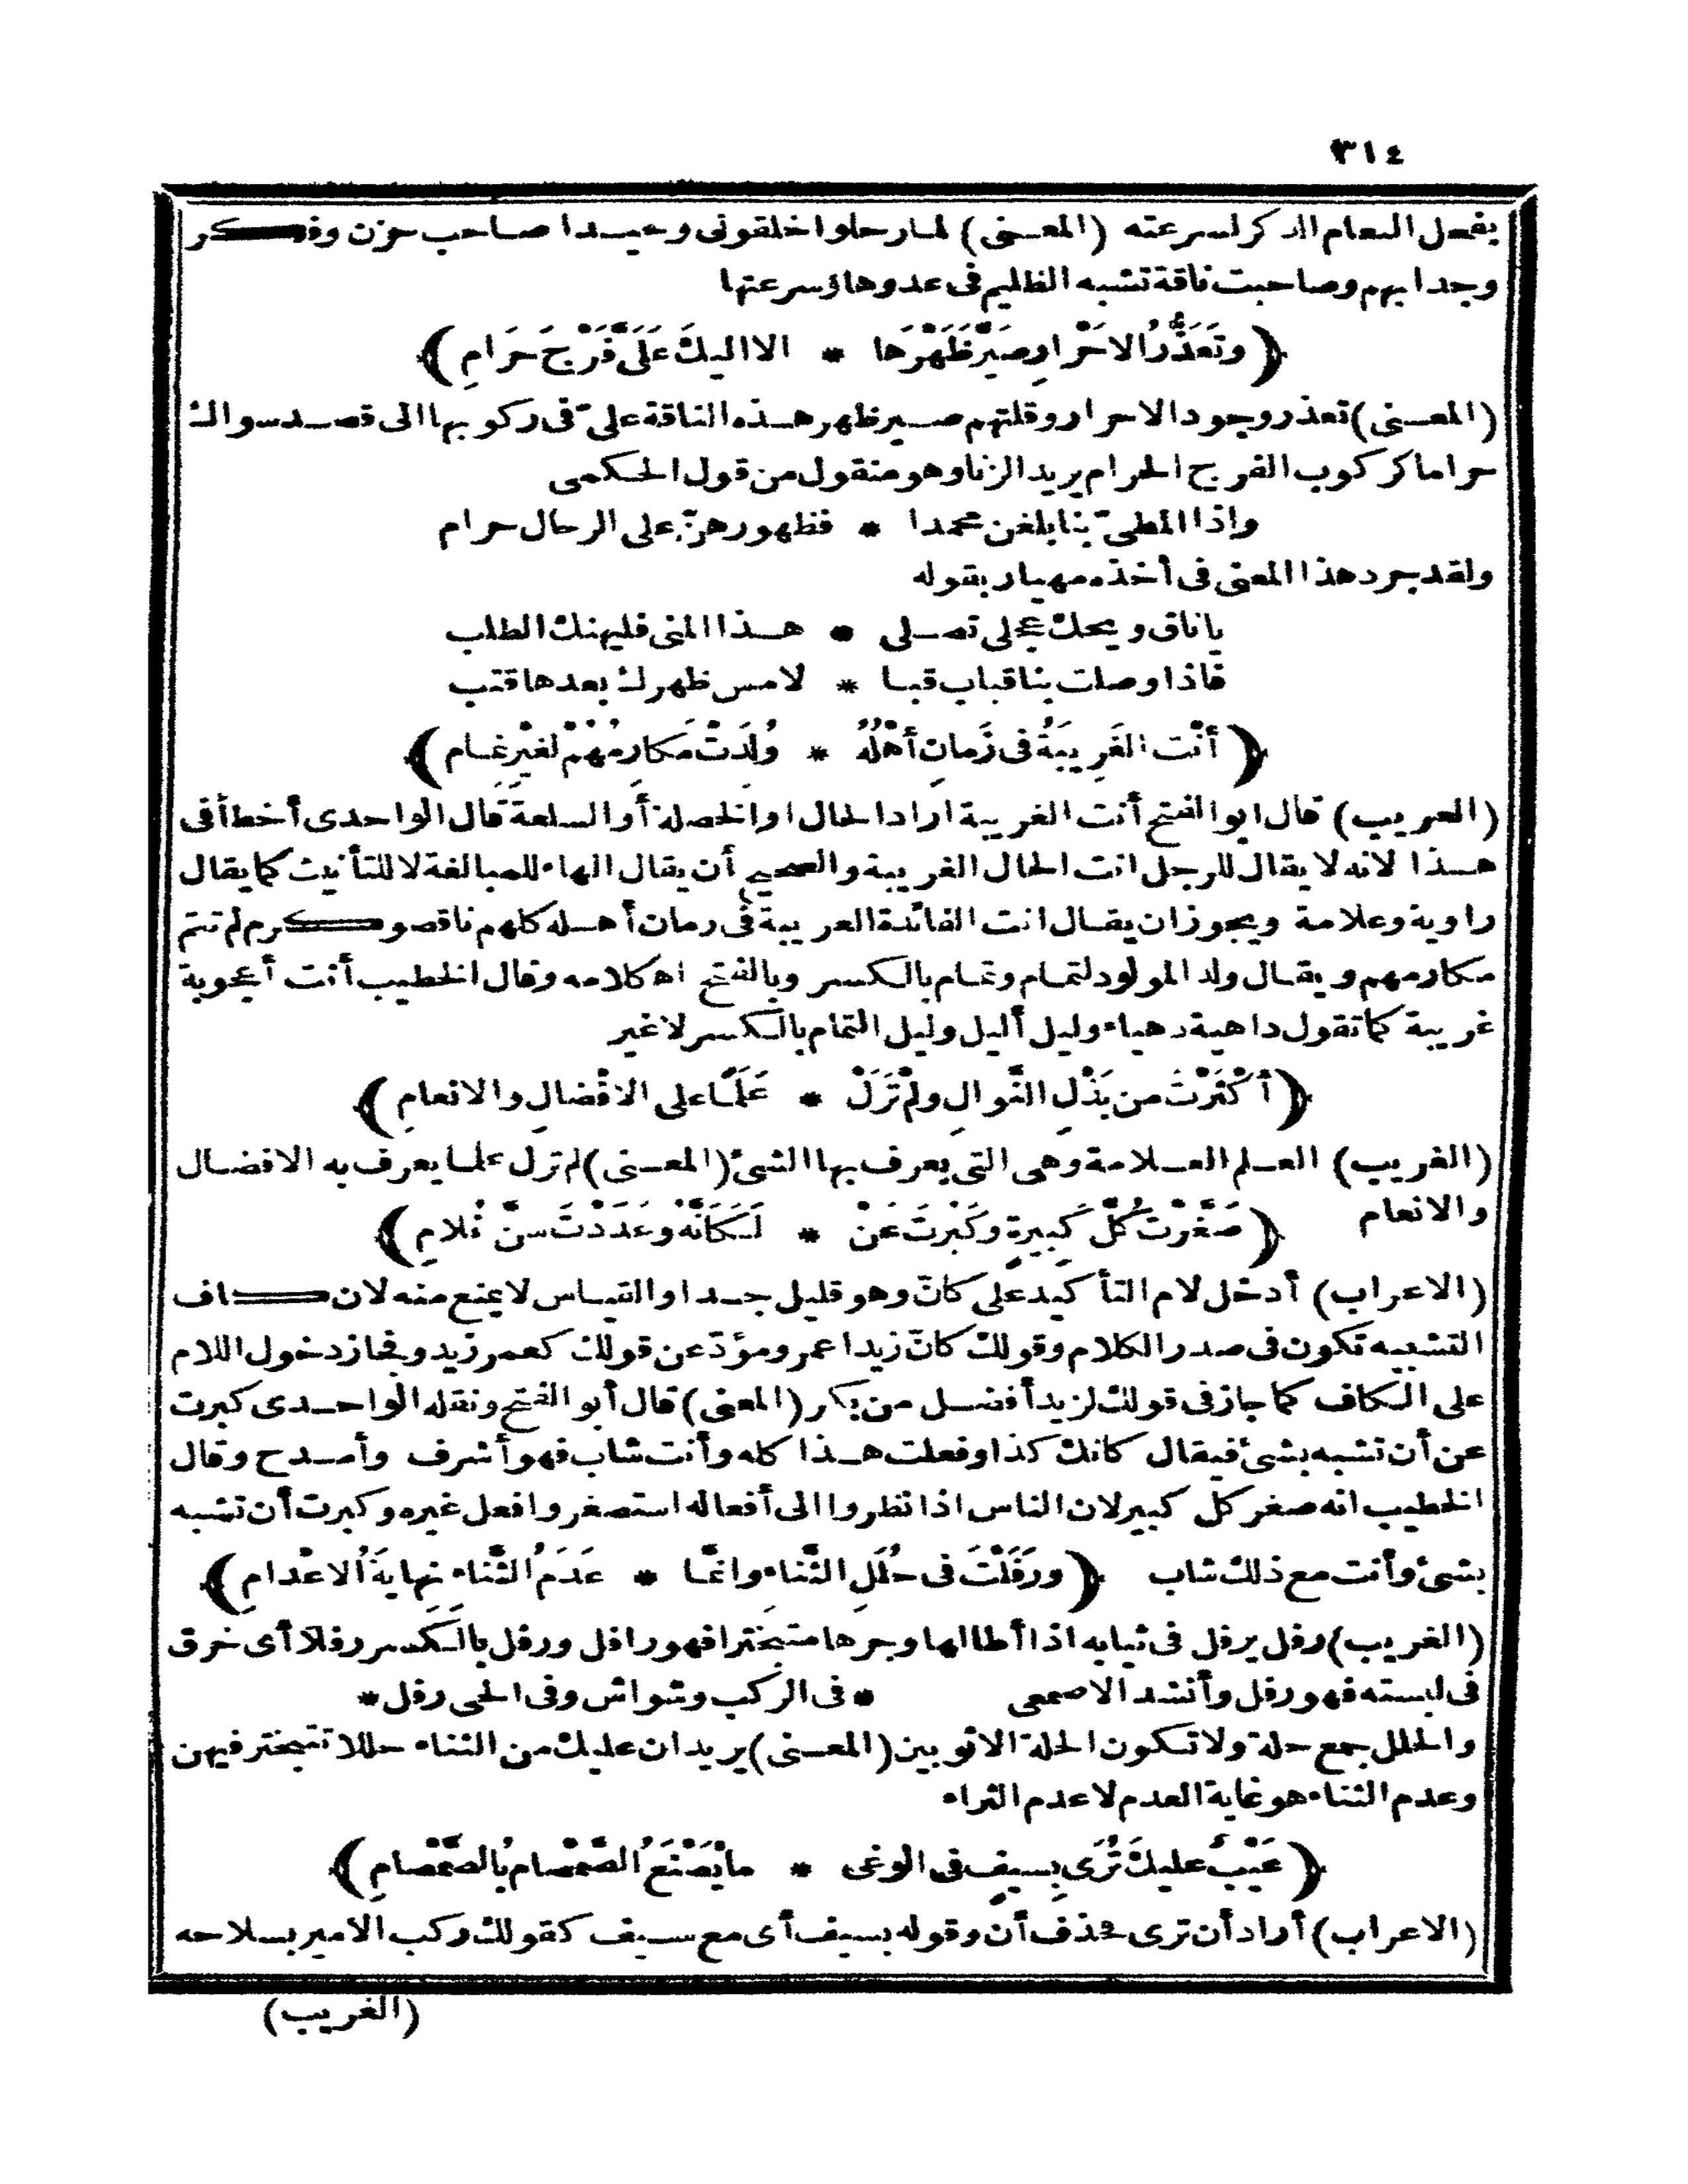 ٣١٤
يفعل النعام الذكر لسرعته (المعنى) لما رحلوا خلفونى وحيدا صاحب حزن وفكر
وجدا بهم وصاحبت ناقة تشبه الظليم فى عدوها وسرعتها
(وتَعَذُّرُ الاحْرارِ صَيَّرَ ظَهْرَها * الا اليكَ عَلَىَّ فَرْجَ حَرامِ)
(المعنى) تعذر وجود الاحرار وقلتهم صير ظهر هذه الناقة علىّ فى ركوبها الى قصد سواك
حراما كركوب الفرج الحرام يريد الزنا وهو منقول من قول الحكمى
واذا المطىّ بنا بلغن محمدا * فظهورهنّ على الرحال حرام
ولقد جرد هذا المعنى فى أخذه مهيار بقوله
يا ناق ويحك عجلى تصلى * هذا المنى فليهنك الطلب
فاذا وصلت بنا قباب قبا * لا مس ظهرك بعدها قتب
(أنْت الغَرِيبَةُ فى زَمانٍ أهْلُهُ * وُلدَتْ مَكارِمُهُمْ لغَيْرِ تَمام)
(العريب) قال ابو الفتح أنت الغريبة اراد الحال او الخصلة أو السلعة قال الواحدى أخطأ فى
هذا لانه لا يقال للرجل انت الحال الغريبة والصحيح أن يقال الهاء للمبالغة لا للتأنيث كما يقال
راوية وعلامة ويجوز ان يقال انت الفائدة العريبة فى زمان أهله كلهم ناقصو كرم لم تتم
مكارمهم ويقال ولد المولود لتمام وتمام بالكسر وبالفتح اه كلامه وقال الخطيب أنت أعجوبة
غريبة كما تقول داهية دهياء وليل أليل وليل التمام بالكسر لا غير
(أكْثَرْتَ من بَذْلِ النَّوالِ ولم تَزَلْ * عَلَمًا على الافْضالِ والانعامِ)
(الغريب) العلم العلامة وهى التى يعرف بها الشئ (المعنى) لم تزل علما يعرف به الافضال
والانعام (صَغَّرْتَ كُلَّ كَبِيرةٍ وكَبُرْتَ عَنْ * لَكَأنَّهُ وعَدَدْتَ سنَّ غُلامِ)
(الاعراب) أدخل لام التأكيد على كأنّ وهو قليل جدا والقياس لا يمنع منه لان كاف
التشبيه تكون فى صدر الكلام وقولك كأنّ زيدا عمرو مؤدّ عن قولك كعمر زيد وفجاز دخول اللام
على الكاف كما جاز فى قولك لزيد أفضل من بكر (المعنى) قال أبو الفتح ونقله الواحدى كبرت
عن أن تشبه بشئ فيقال كانك كذا وفعلت هذا كله وأنت شاب فهو أشرف وأمدح وقال
الخطيب انه صغر كل كبير لان الناس اذا نظروا الى أفعاله استصغروا فعل غيره وكبرت أن تشبه
بشئ وأنت مع ذلك شاب (ورَفَلْتَ فى حُلَلِ الثَّناء وانَّما * عَدَمُ الثَّناء نهايةُ الاعْدامِ)
(الغريب) رفل يرفل فى ثيابه اذا أطالها وجرها متبخترا فهو رافل ورفل بالكسر رفلا أى خرق
فى لبسته فهو رفل وأنشد الاصمعى * فى الركب وشواش وفى الحى رفل *
والحلل جمع حلة ولا تكون الحلة الا ثوبين (المعنى) يريد ان عليك من الثناء حللا تتبختر فيهن
وعدم الثناء هو غاية العدم لا عدم الثراء
(عَيْبٌ عليكَ تُرَى بسيفٍ فى الوغى * ما يَصْنَعُ الصَّمْصامُ بالصَّمْصامِ)
(الاعراب) أراد أن ترى فحذف أن وقوله بسيف أى مع سيف كقولك ركب الامير بسلاحه
(الغريب)